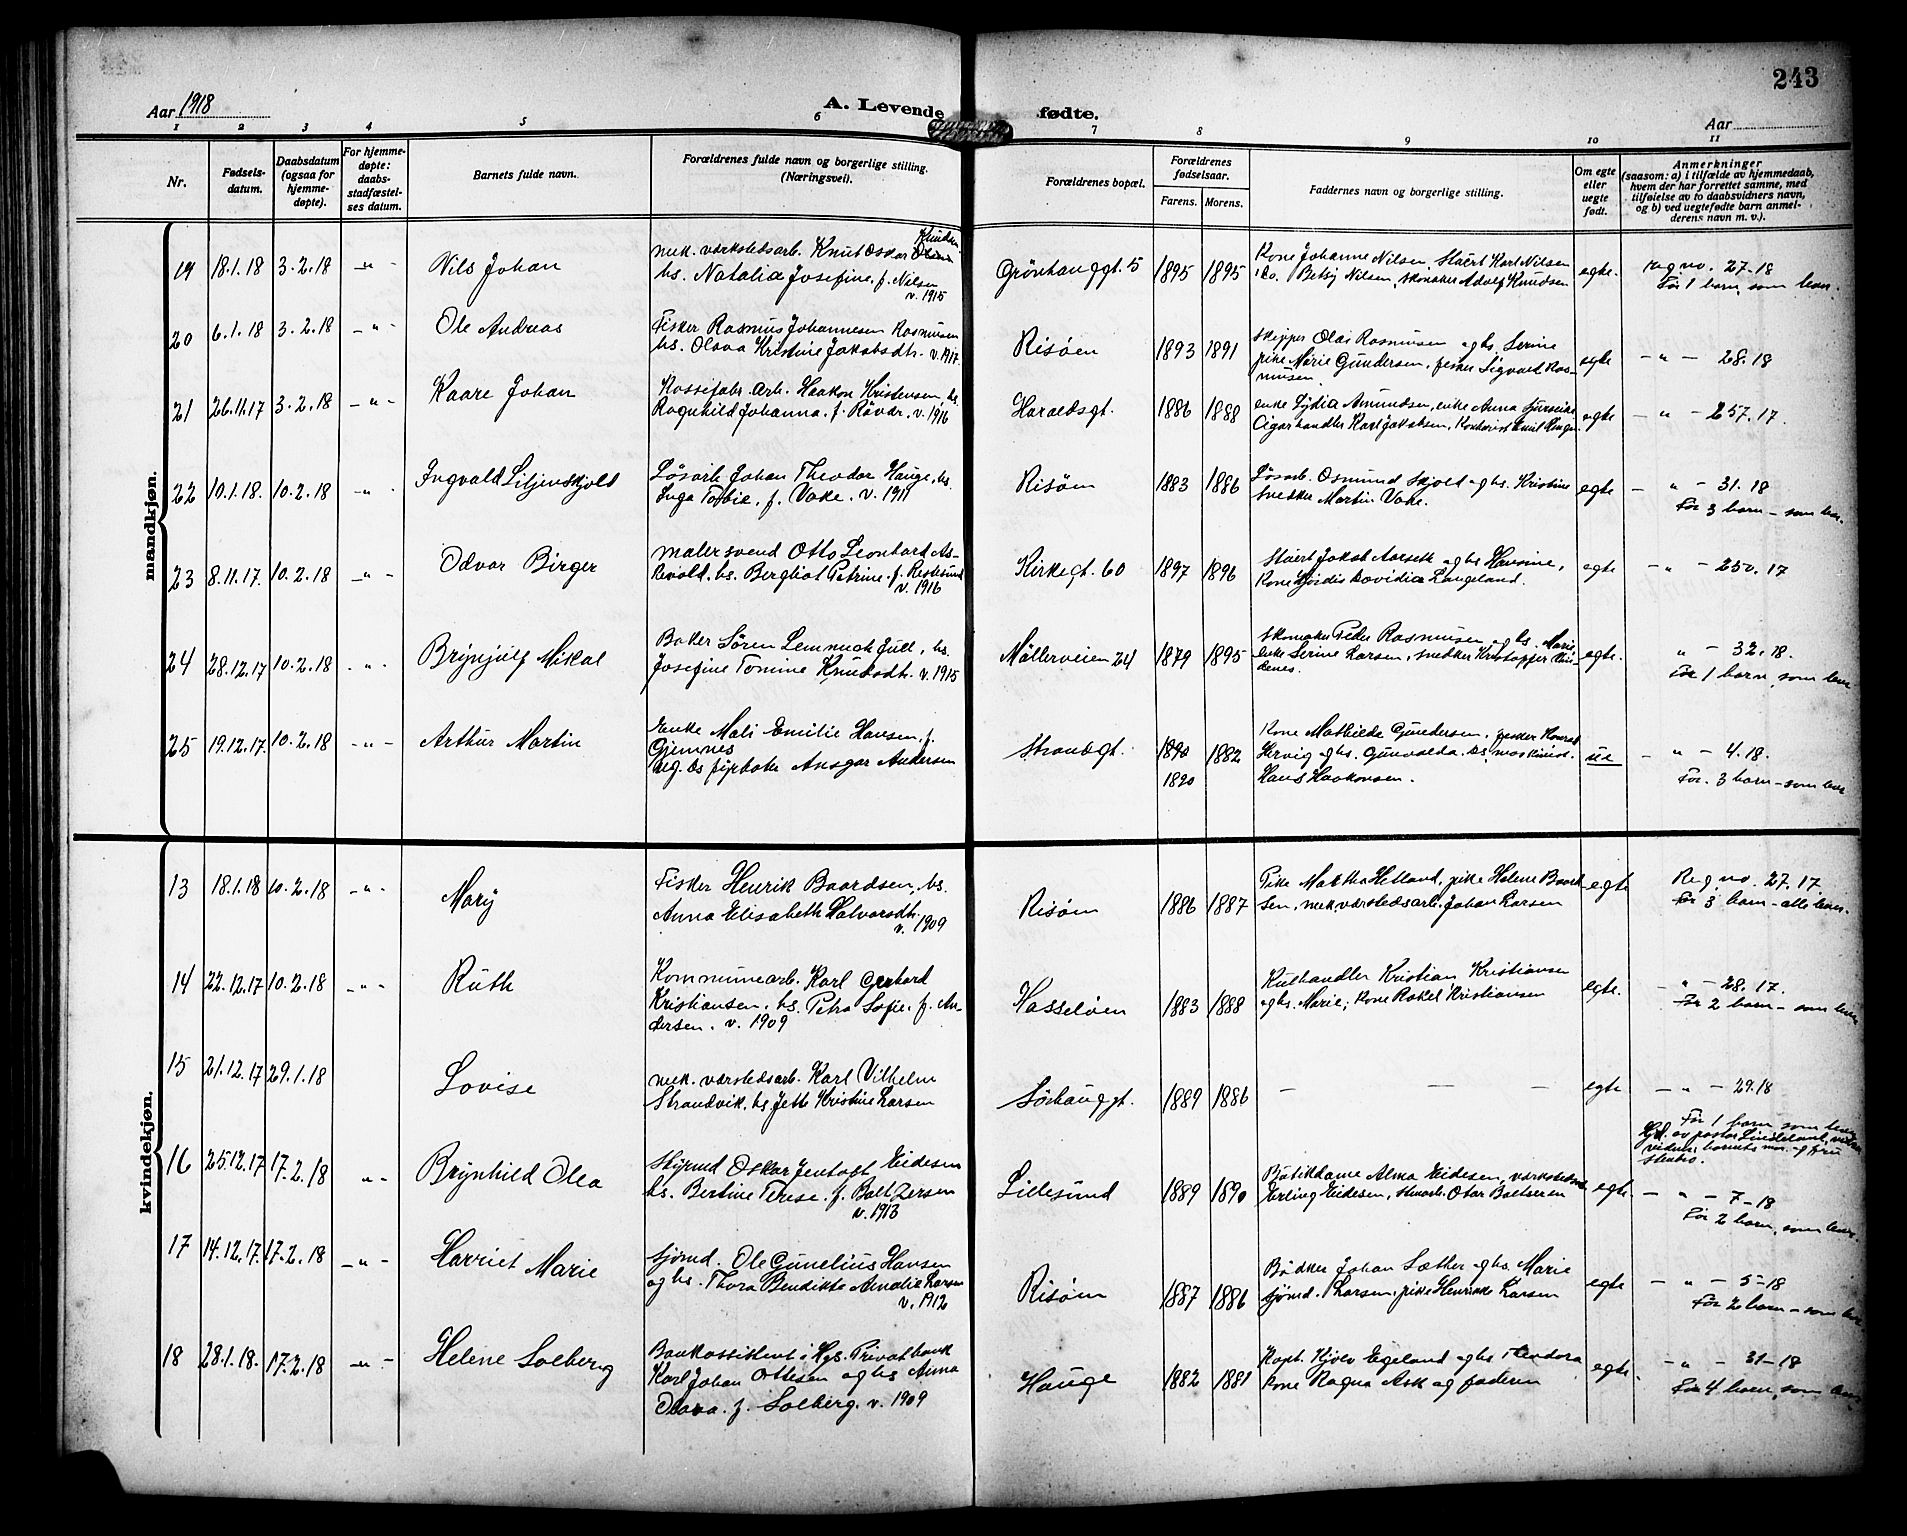 243
Aar 1918
A. Levende fødte.
Aar
1 2 3 4 5 6 7 8 9 10 11
Nr.
Fødsels-
datum.
Daabsdatum
(ogsaa for
hjemme-
døpte).
For hjemme-
døpte:
daabs-
stadfæstel-
ses datum.
Barnets fulde navn.
Forældrenes fulde navn og borgerlige stilling.
(Næringsvei).
Forældrenes bopæl.
Forældrenes
fødselsaar.
Farens. Morens.
Faddernes navn og borgerlige stilling.
Om egte
eller
uegte
født.
Anmerkninger
(saasom: a) i tilfælde av hjemmedaab,
hvem der har forrettet samme, med
tilføielse av to daabsvidners navn,
og b) ved uegtefødte barn anmel-
derens navn m. v.).
mandkjøn.
19 18.1.18 3.2.18 -"- Nils Johan
mek. værkstedsarb. Knut Oskar Knudsen
hs. Natalia Josefine, f. Nilsen
v. 1915
Grönhauggt. 5 1895 1895
Kone Johanne Nilsen, Stuert Karl Nilsen
do. Betsy Nilsen, skomaker Adolf Knudsen
egte. reg no. 27-18
Før 1 barn, som lever.
20 6.1.18 3.2.18 -"- Ole Andreas
Fisker Rasmus Johannesen Rasmussen
hs. Olava Kristine Jakobsdtr. v. 1917.
Risøen 1893 1891
Skipper Olai Rasmussen og hs. Serine
pike Marie Gundersen, fisker Sigvald Ras-
mussen.
egte - " - 28.18
21 26.11.17 3.2.18 -"- Kaare Johan
Kassefabr. arb. Haakon Kristensen, hs.
Ragnhild Johanna, f. Røvær, v. 1916
Haraldsgt. 1886 1888
enke Lydia Amundsen, enke Anna
Cigarhandler Karl Jakobsen, Kontorist
egte - " - 257.17.
22 10.1.18. 10.2.18 -"- Ingvald Liljenskjold
Løsarb. Johan Theodor Hauge, hs.
Inga Tobie, f. Vake. v. 1911
Risøen 1883 1886
Løsarb. Osmund Skjold og hs. Kristine
snedker Martin Vake.
egte - " - 31.18
Før 3 barn - som lev.
23 8.11.17. 10.2.18 -"- Odvar Birger
Malersvend Otto Leonhard As-
Revold. hs. Bergliot Petrine. f. Restesund
v. 1916
Kirkegt. 60 1897 1896
Stuert Jakob Aarseth og hs Hansine,
Kone Hjørdis Davidia Langeland.
egte - " - 250.17
24 28.12.17 10.2.18 -"- Brynjulf Mikal
Baker Søren Lemmick Juell, hs.
Josefine Tomine Knudsdtr. v. 1915
Møllerveien 24 1879 1895
Skomaker Peder Rasmussen og hs. Marie,
enke Serine Larsen, snedker Kristoffer
egte. " - 32.18.
Før 1 barn, som lever
25 19.12.17. 10.2.18 -"- Arthur Martin
Enke Mali Emilie Hansen, f.
Gjemnes
ug. bs fyrbøter Ansgar Andersen
Strandgt. 1890 1882
1890
Kone Mathilde Gundersen, fisker Konrad
Hervig og hs. Gunvalda. bs, maskinist.
Hans Haakonsen.
ue - " - 4.18.
Før. 3 barn - som lever
kvindekjøn.
13 18.1.18 10.2.18 -"- Mary
Fisker Henrik Baardsen, hs.
Anna Elisabeth Halvorsdtr.
v. 1909
Risøen 1886 1887
Pike Martha Helland, pike Helene Baard-
sen, mek. værkstedsarb. Johan Larsen
egte Reg no. 27.17.
Før 3 barn - alle lever.
14 22.12.17 10.2.18 -"- Ruth
Kommunearb. Karl Gerhard
Kristiansen, hs. Petra Sofie. f. An-
dersen. v. 1909
Hasseløen 1883 1888
Kulhandler Kristian Kristiansen
og hs. Marie, kone Rakel Kristiansen
egte. - " - 28.17.
Før 2 barn - som lever
15 21.12.17 29.1.18 Lovise
mek. værkstedsarb. Karl Vilhelm
Strandvik, hs. Jette Kristine Larsen
Sørhauggt. 1889 1886
- - -
egte - " - 29.18
Før 1 barn, som lever
Hjd. av pastor Lindeland,
vidner: barnets mor og fru
Stensø.
16 25.12.17 17.2.18 "- Brynhild Olea
Styrmd Oskar Jentoft Eidesen
hs. Bertine Terese f. Baltzersen
v. 1913
Lillesund 1889 1890
Butikdame Alma Eidesen,
Erling Eidesen, Otar Baltzersen
egte. - " - 7-18
Før 2 barn, som lever.
17 14.12.17. 17.2.18 -"- Harriet Marie
Sjømd. Ole Cunelius Hansen
og hs. Thora Bendikte Amalie Larsen
v. 1912
Risøen 1887 1886
Bødker Johan Sæther og hs. Marie
sjømd. Larsen, pike Henrikke Larsen
egte - " - 5-18
Før 2 barn - som lev
18 28.1.18. 17.2.18 -"- Helene Solberg
Bankassistent i Hgs. Privatbank
Karl Johan Ottesen og hs Anna
Olava. f. Solberg. v. 1909
Hauge 1882 1881
Kapt. Kjølv Egeland og hs Theodora,
kone Ragna Ask og faderen
egte. - " - 31-18
Før 4 barn, som lever